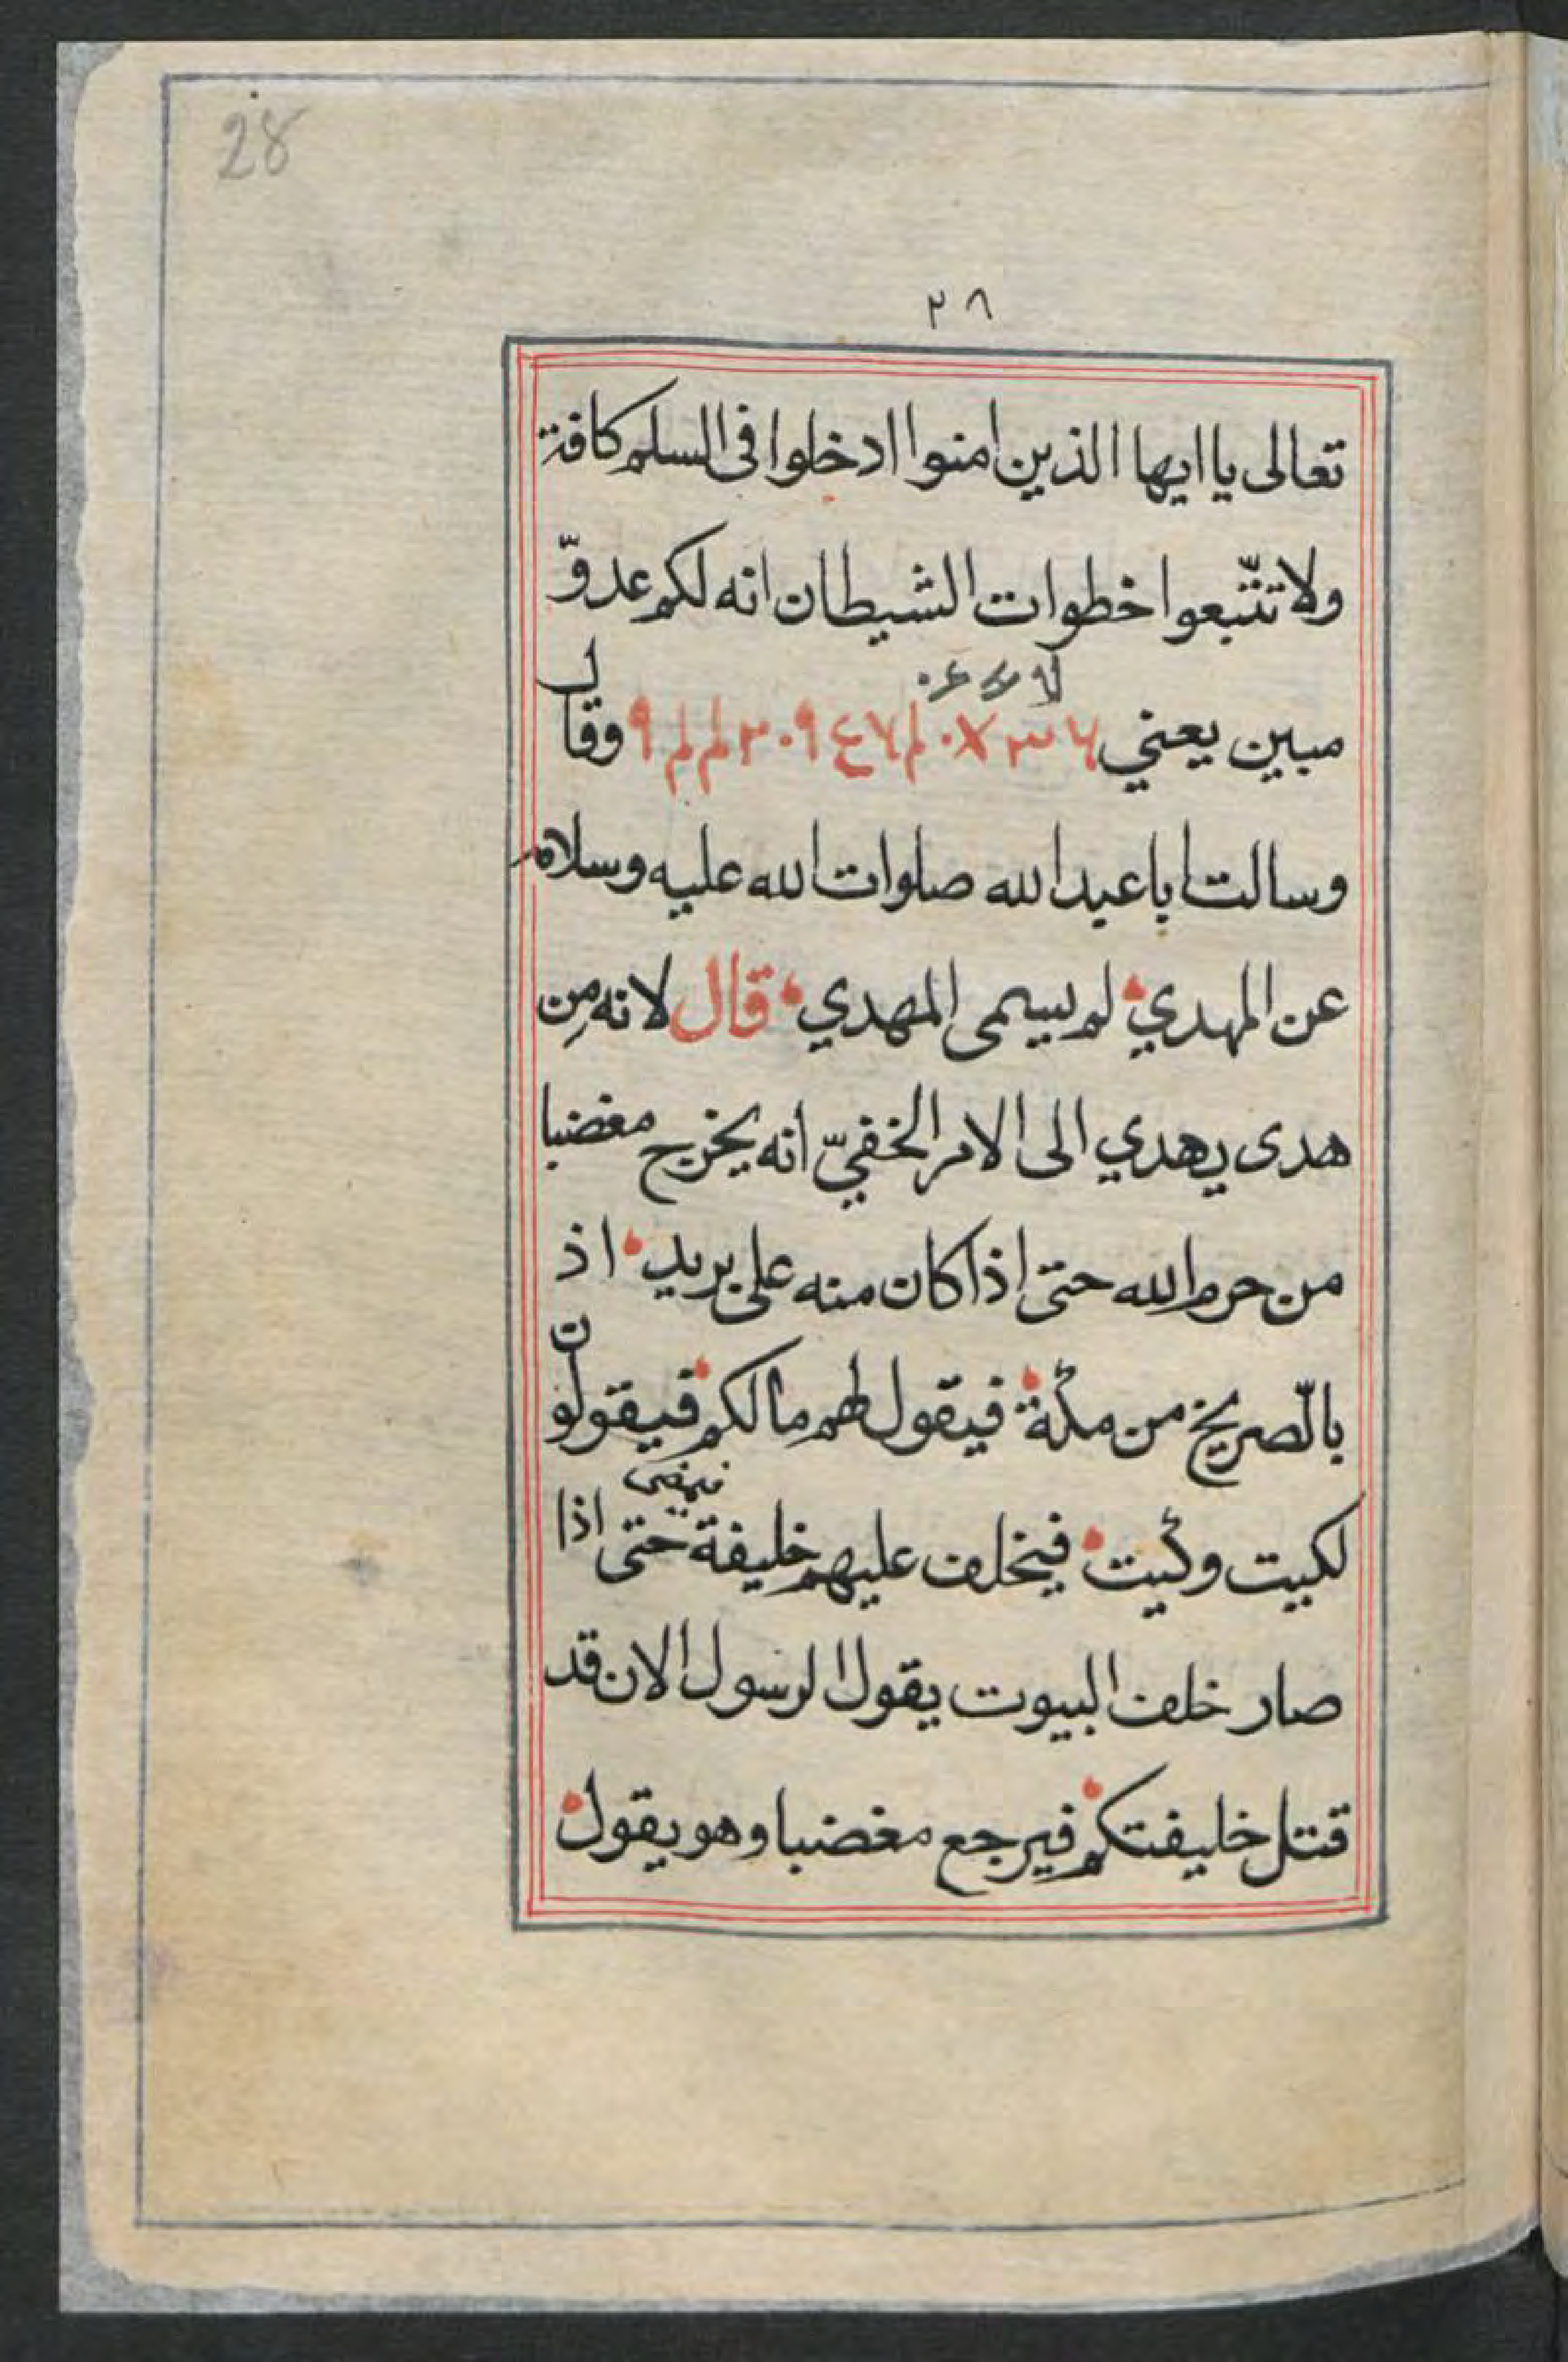 28
٢٨
تعالى يا ايها الذين امنوا ادخلوا فى السلم كافة
ولا تتّبعوا خطوات الشيطان انه لكم عدوّ
مبين يعني وقال
وسالت اباعبدالله صلوات الله عليه وسلامه
عن المهدي لم يسمى المهدي قال لانه مِن
هدى يهدي الى الامر الخفيّ انه يخرج مغضبا
من حرم الله حتى اذا كان منه على بريد اذ
بالصريخ من مكة فيقول لهم ما لكم فيقولون
فيمضى
لكيت وكيت فيخلف عليهم خليفة حتى اذا
صار خلف البيوت يقول الرسول الان قد
قتل خليفتكم فيرجع مغضبا وهو يقول